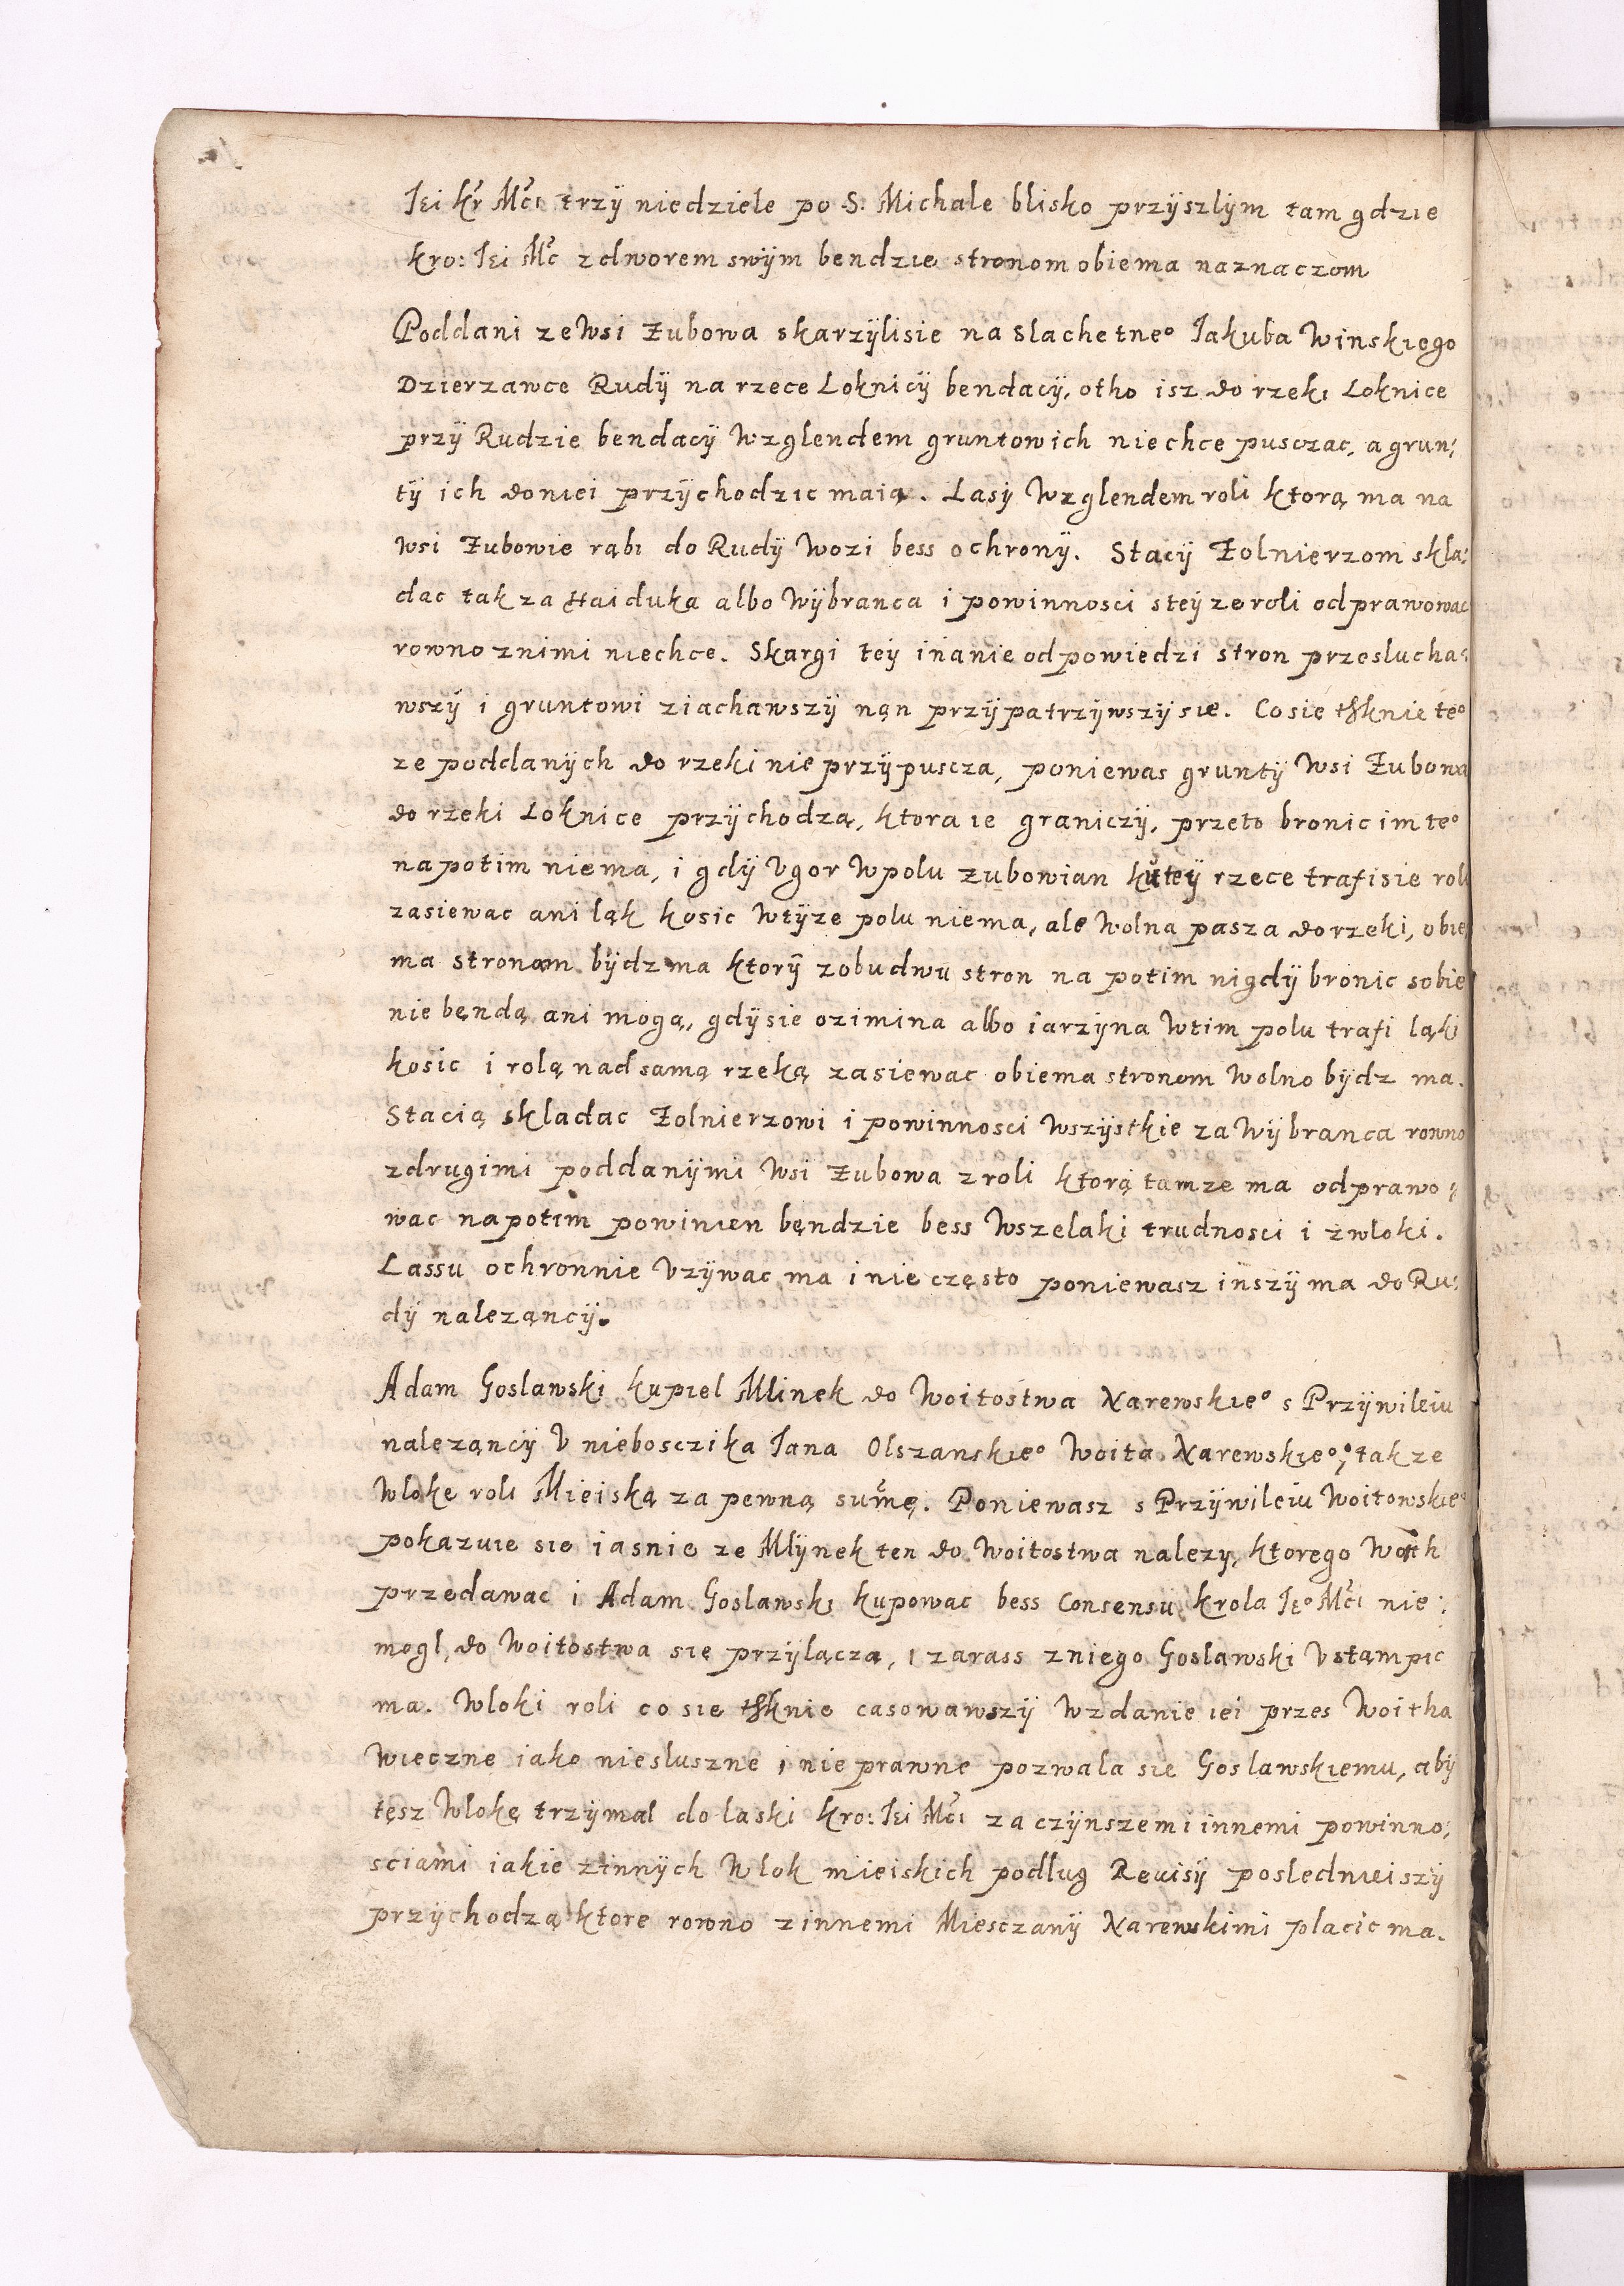 Jei Kr Mci trzÿ niedziele po S. Michale blisko przÿszlÿm tam gdzie
kro: Jei Mc z dworem swÿm bendzie stronom obiema naznaczom
Poddani ze Wsi Zubowa skarzÿli sie na Slachetne° Jakuba Winskiego
Dzierzawce Rudÿ na rzece Loknicÿ bendacÿ, otho isz do rzeki Loknice
przÿ Rudzie bendacÿ Wzglendem gruntow ich nie chce pusczac, a grun:
tÿ ich do niei przÿchodzic maią. Lasÿ Wzglendem roli ktorą ma na
Wsi Zubowie rąbi do Rudÿ Wozi bess ochronÿ. Stacÿ Zolnierzom skla:
dac tak za Haiduka albo Wÿbranca i powinnosci s teÿ ze roli odprawowac
rowno z nimi niechce. Skargi teÿ i na nie odpowiedzi stron przeslucha:
wszÿ i gruntowi ziachawszÿ nąn przÿpatrzÿwszÿ sie. Co sie tÿknie te°
ze poddanÿch do rzeki nie przÿpuscza, poniewas gruntÿ Wsi Zubowa
do rzeki Loknice przÿchodzą, ktora ie graniczÿ, przeto bronic im te°
na potim niema, i gdÿ Vgor W polu zubowian ku teÿ rzece trafi sie roli
zasiewac ani ląk kosic W tÿze polu niema, ale Wolna pasza do rzeki, obie
ma stronom bÿdz ma ktorÿ z obudwu stron na potim nigdÿ bronic sobie
nie bendą ani mogą, gdÿ sie ozimina albo iarzÿna W tim polu trafi ląki
kosic i rolą nad samą rzeką zasiewac obiema stronom Wolno bÿdz ma.
Stacią skladac Zolnierzowi i powinnosci Wszÿstkie za Wÿbranca rowno
z drugimi poddanÿmi Wsi Zubowa z roli ktorą tamze ma odprawo:
wac na potim powinien bendzie bess Wszelaki trudnosci i zwloki.
Lassu ochronnie Vzÿwac ma i nie często poniewasz inszÿ ma do Ru:
dÿ nalezancÿ.
Adam Goslawski kupiel Mlinek do Woitostwa Narewskie° s Przÿwileiu
nalezancÿ V niebosczika Jana Olszanskie° Woita Narewskie°, takze
Wloke roli Mieiską za pewną sumę. Poniewasz s Przÿwileiu Woitowskie°
pokazuie sie iasnie ze Mlÿnek ten do Woitostwa nalezy, ktorego
przedawac i Adam Goslawski kupowac bess Consensu Krola Je° Mci nie:
mogl, do Woitostwa się przÿlącza, i zarass z niego Goslawski Vstąmpic
ma. Wloki roli co sie tÿknie casowawszÿ Wzdanie iei przes Woitha
Wieczne iako niesluszne i nie prawne pozwala sie Goslawskiemu, abÿ
tęsz Wlokę trzÿmal do laski kro: Jei Mci za czÿnszem i innemi powinno:
sciami iakie z innÿch Wlok mieiskich podlug Reuisÿ posledniei szÿ
przÿchodzą ktore rowno z innemi Miesczanÿ Narewskimi placic ma.